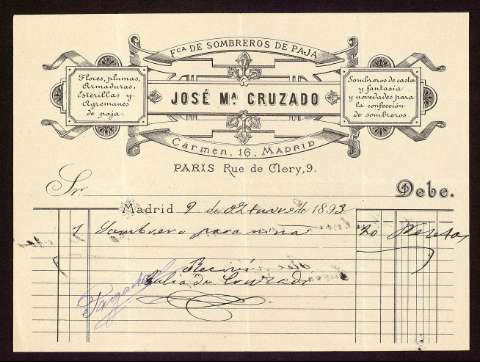 Fca DE SOMBREROS DE PAJA
Flores, plumas,
Armaduras,
Esterillas y
Agremanes
de paja.
JOSÉ Mª CRUZADO
Sombreros de casta
y fantasía
y novedades para
la confección
de sombreros.
Carmen, 16, MADRID
PARIS Rue de Clery, 9.
Sr.
Debe.
Madrid 9 de Octubre de 1893
1 Sombrero para niña 20 Pesetas
Recibí